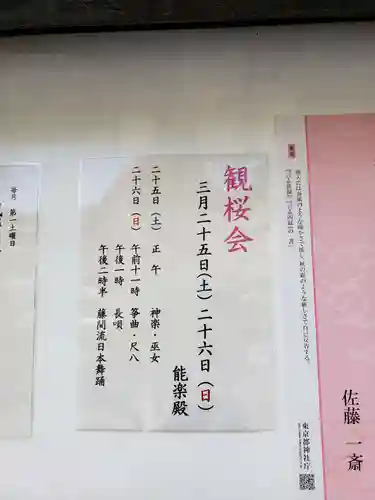 観桜会
三月二十五日（土）二十六日（日）
能楽殿
二十五日（土） 正午 神楽・巫女
二十六日（日） 午前十一時 箏曲・尺八
午後一時 長唄
午後二時半 藤間流日本舞踊
佐藤 一斎
東京都神社庁
毎月 第一土曜日